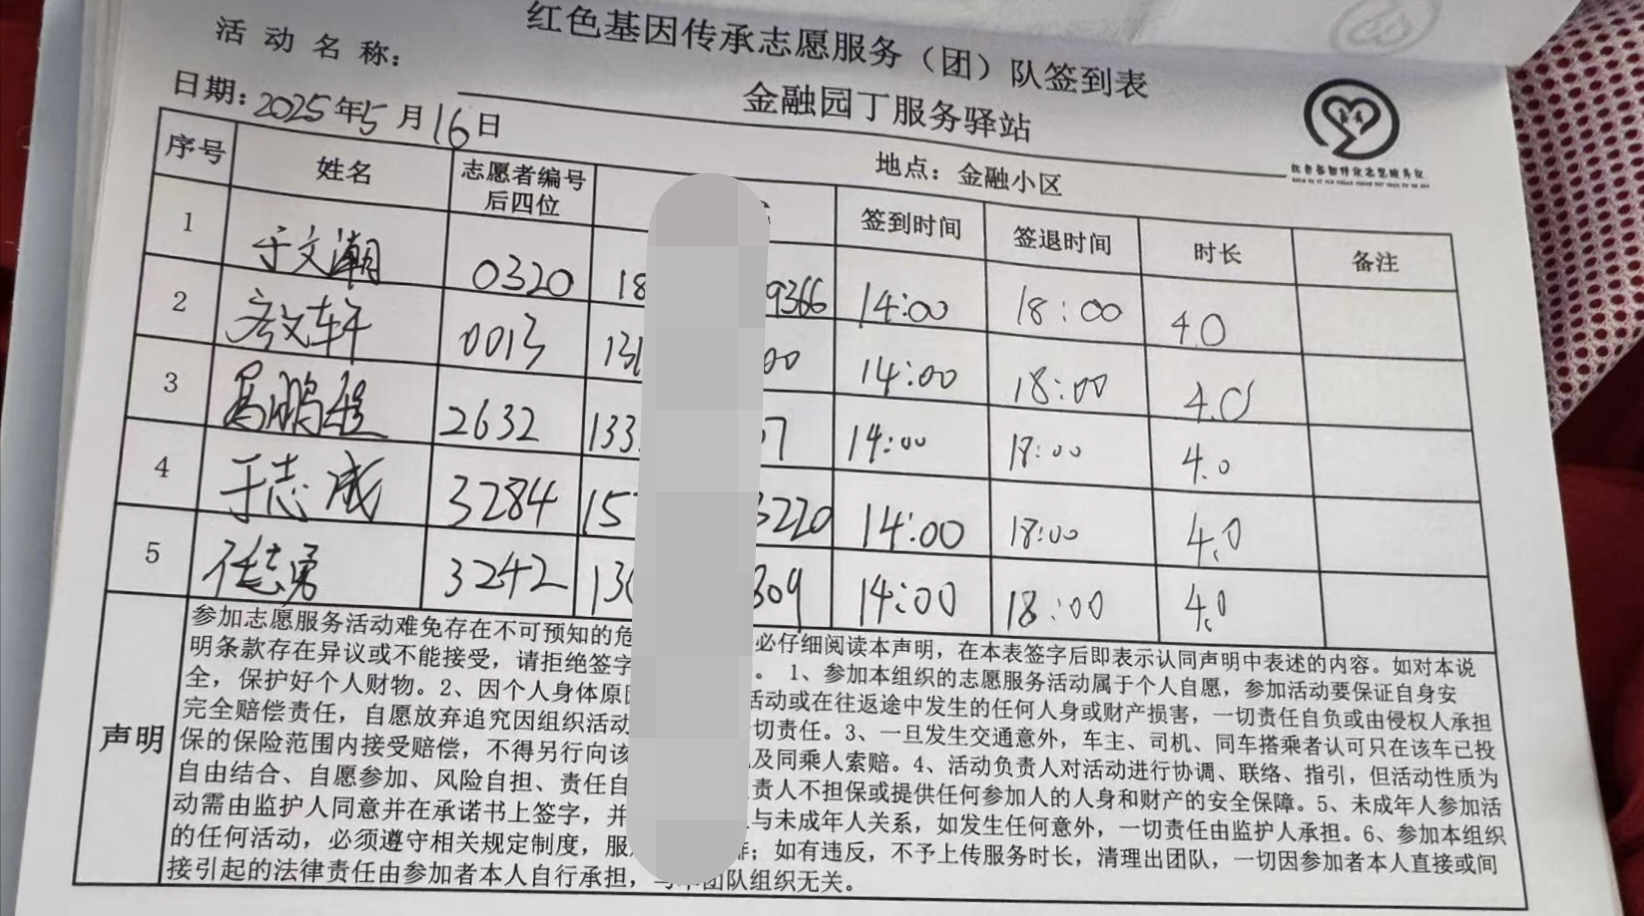 红色基因传承志愿服务（团）队签到表
活动名称：
金融园丁服务驿站
日期：2025年5月16日
地点：金融小区
序号 姓名 志愿者编号后四位 签到时间 签退时间 时长 备注
1 于文潮 0320 18 9366 14:00 18:00 4.0
2 文轩 0013 131 00 14:00 18:00 4.0
3 葛鹏程 2632 133 37 14:00 18:00 4.0
4 于志成 3284 15 3220 14:00 18:00 4.0
5 任志勇 3242 13 809 14:00 18:00 4.0
声明
参加志愿服务活动难免存在不可预知的危 必仔细阅读本声明，在本表签字后即表示认同声明中表述的内容。如对本说
明条款存在异议或不能接受，请拒绝签字 。1、参加本组织的志愿服务活动属于个人自愿，参加活动要保证自身安
全，保护好个人财物。2、因个人身体原因 活动或在往返途中发生的任何人身或财产损害，一切责任自负或由侵权人承担
完全赔偿责任，自愿放弃追究因组织活动 一切责任。3、一旦发生交通意外，车主、司机、同车搭乘者认可只在该车已投
保的保险范围内接受赔偿，不得另行向该 及同乘人索赔。4、活动负责人对活动进行协调、联络、指引，但活动性质为
自由结合、自愿参加、风险自担、责任自 责人不担保或提供任何参加人的人身和财产的安全保障。5、未成年人参加活
动需由监护人同意并在承诺书上签字，并 与未成年人关系，如发生任何意外，一切责任由监护人承担。6、参加本组织
的任何活动，必须遵守相关规定制度，服 ；如有违反，不予上传服务时长，清理出团队，一切因参加者本人直接或间
接引起的法律责任由参加者本人自行承担， 团队组织无关。